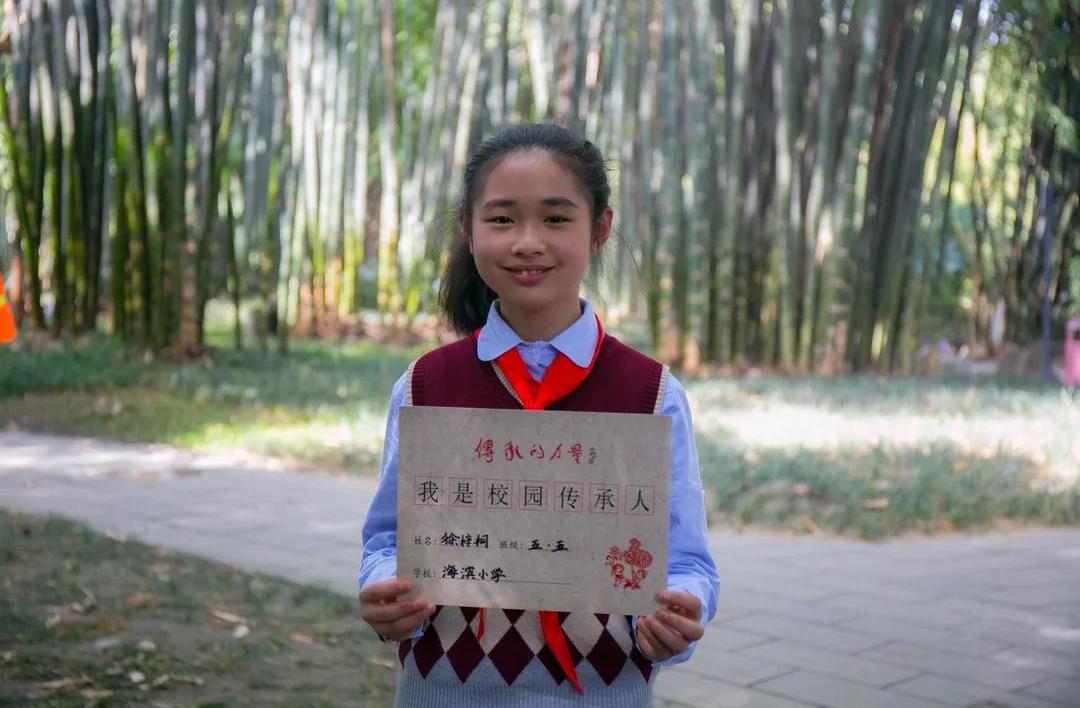 傳承的力量
我是校园传承人
姓名:徐梓桐 班级:五·五
学校:海滨小学